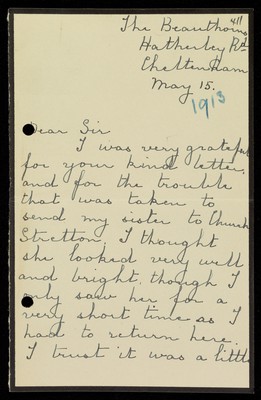 411
The Beauthorns
Hatherley Rd
Cheltenham
May 15.
1913
Dear Sir
I was very grateful
for your kind letter,
and for the trouble
that was taken to
send my sister to Church
Stretton. I thought
she looked very well
and bright, though I
only saw her for a
very short time as I
had to return here.
I trust it was a little